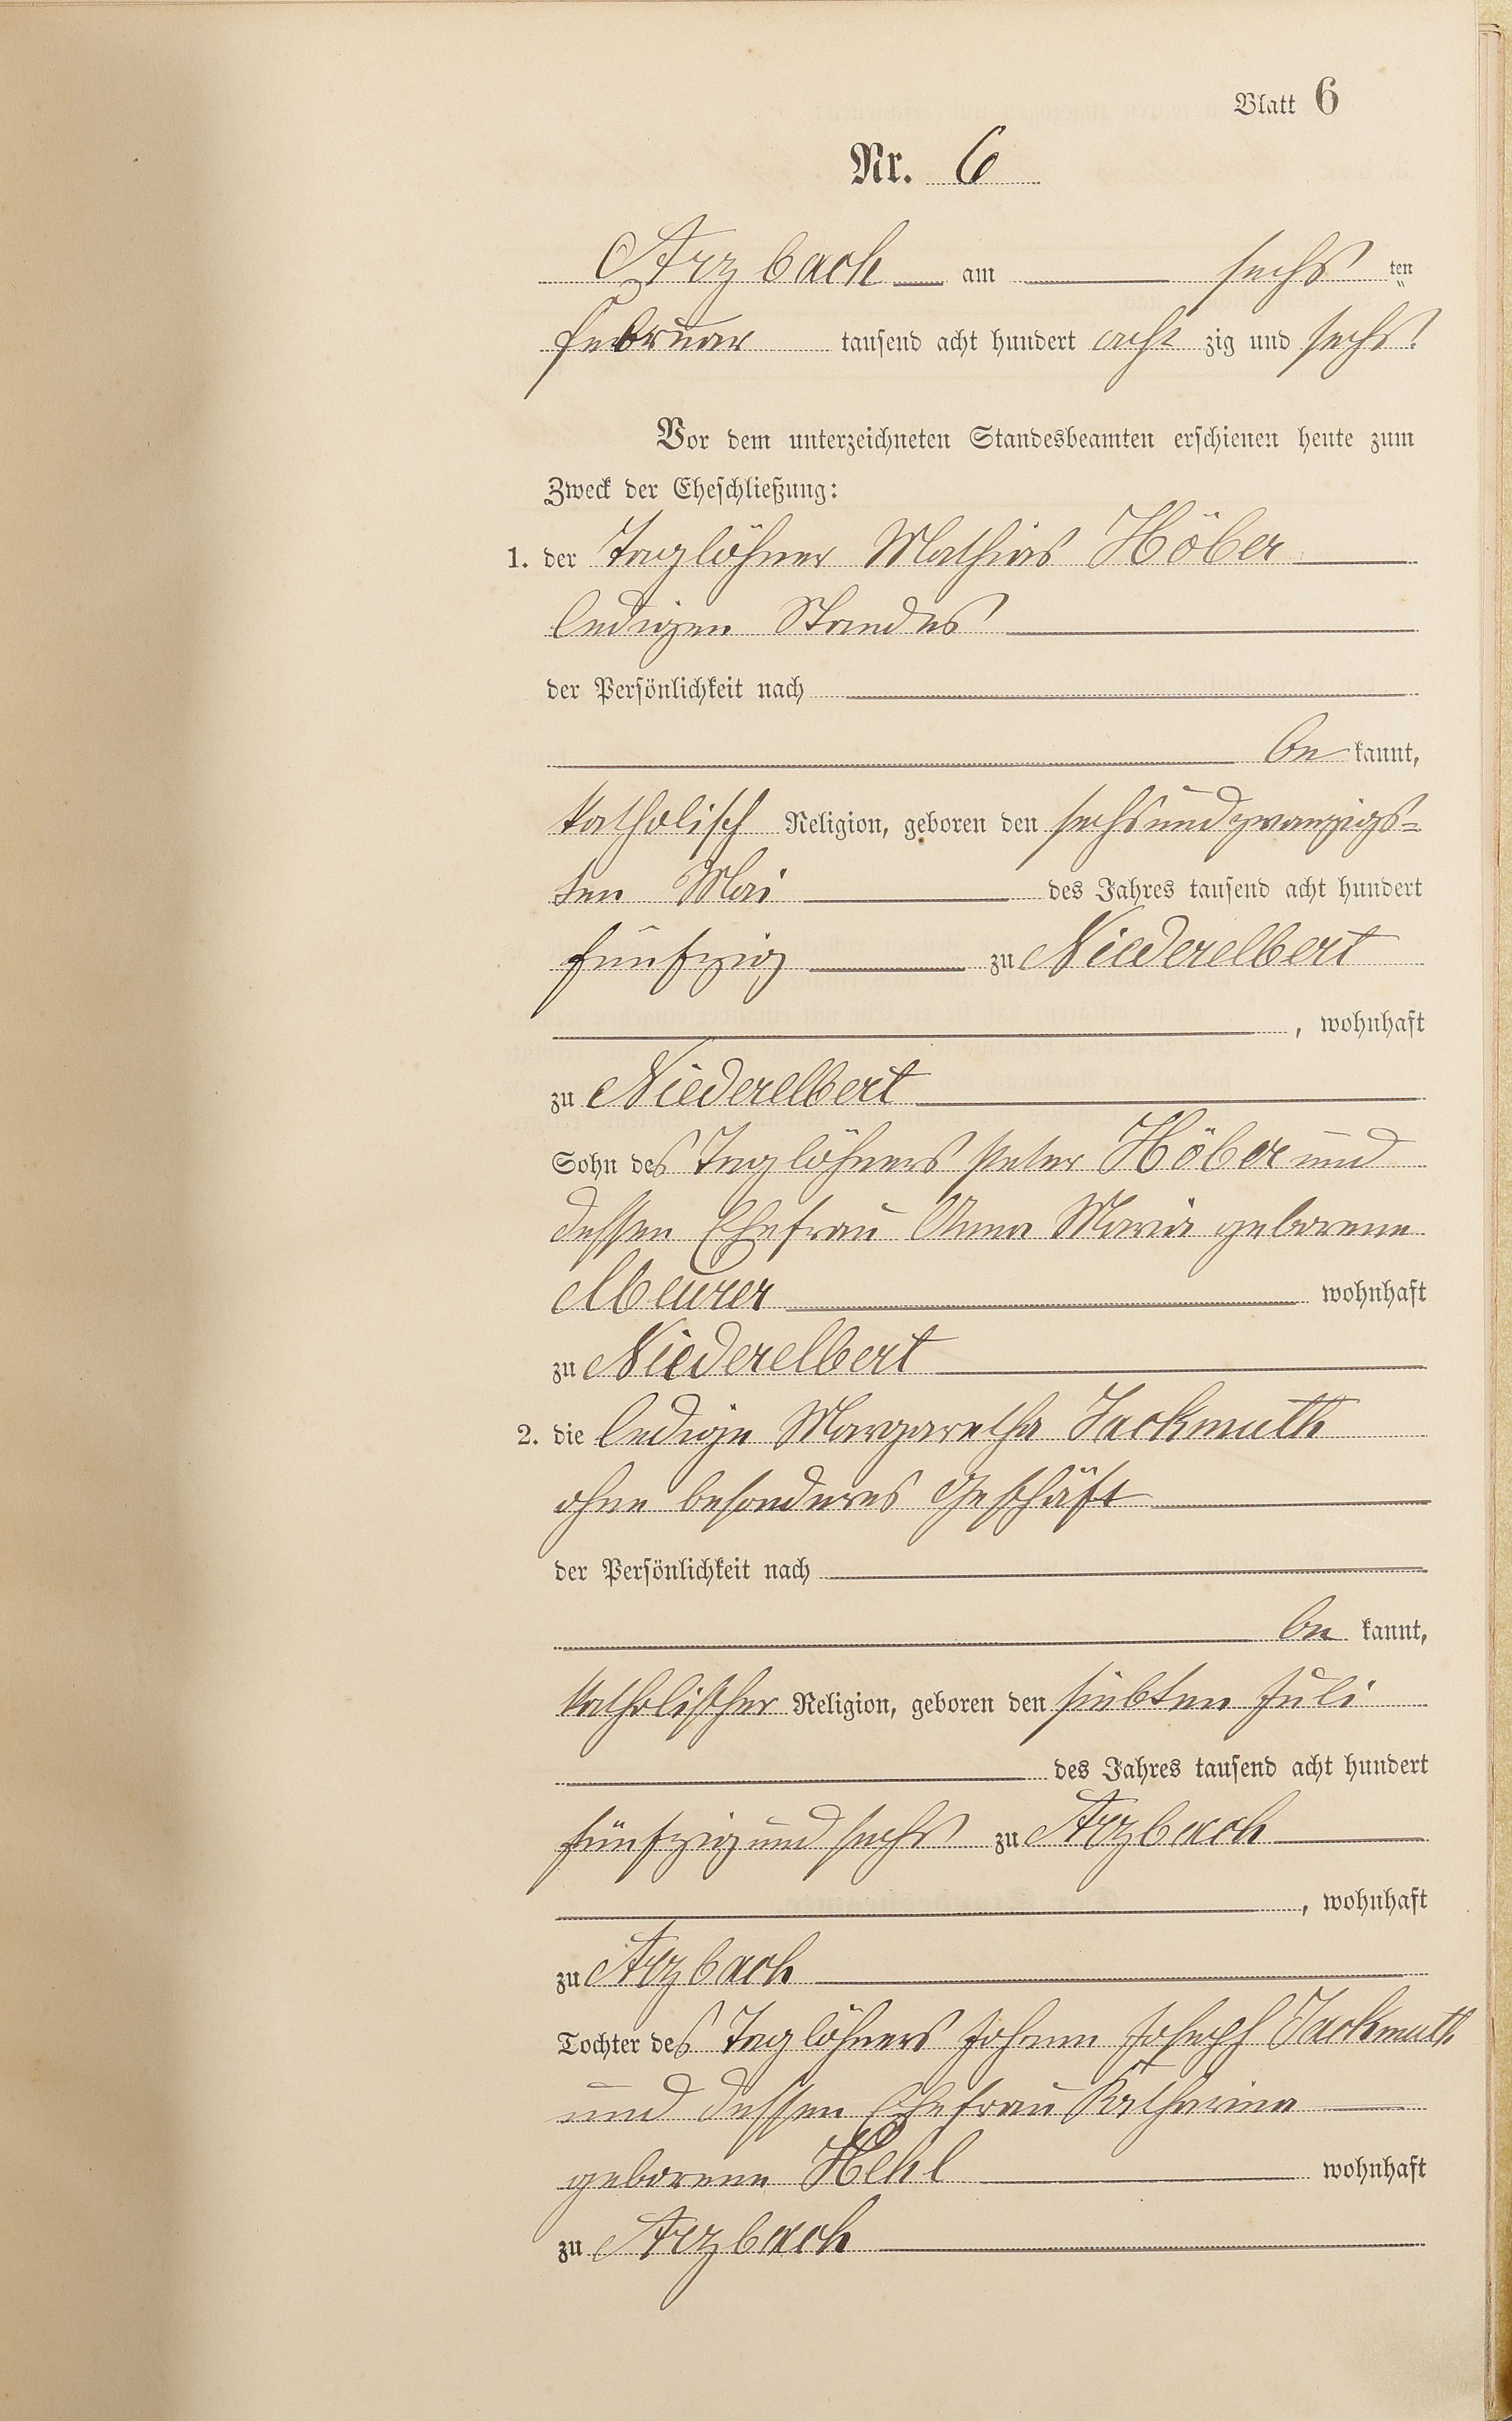 Blatt 6
Nr. 6
Arzbach am sechs ten
Februar tausend acht hundert acht zig und sechs.
Vor dem unterzeichneten Standesbeamten erschienen heute zum
Zweck der Eheschließung:
1. der Taglöhner Mathias Höber
ledigen Standes
der Persönlichkeit nach
be kannt,
katholisch Religion, geboren den sechsundzwanzigs-
ten Mai des Jahres tausend acht hundert
fünfzig zu Niederelbert
, wohnhaft
zu Niederelbert
Sohn des Taglöhners Peter Höber und
dessen Ehefrau Anna Maria geborene
Meurer wohnhaft
zu Niederelbert
2. die ledige Margaretha Jackmuth
ohne besonderes Geschäft
der Persönlichkeit nach
be kannt,
katholischer Religion, geboren den siebten Juli
des Jahres tausend acht hundert
fünfzig und sechs zu Arzbach
, wohnhaft
zu Arzbach
Tochter des Taglöhners Johann Joseph Jackmuth
und dessen Ehefrau Katharina
geborene Hehl wohnhaft
zu Arzbach